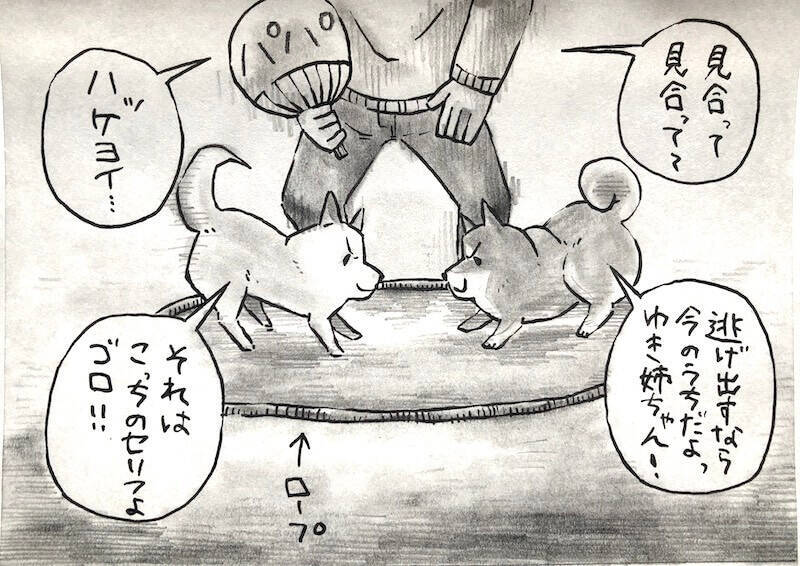 見合って
見合って〜
パパ
ハッケヨイ…
逃げ出すなら
今のうちだよっ
ゆき姉ちゃん!
それは
こっちのセリフよ
ゴロ!!
←ロープ